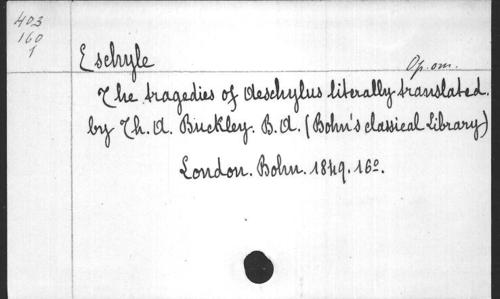 403
160
1
Eschyle
Op. om.
The tragedies of Aeschylus literally translated.
by Th. A. Buckley. B. A. (Bohn's classical Library)
London. Bohn. 1849. 16º.